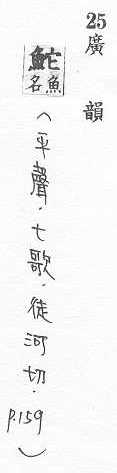 25廣韻
鮀 魚名
(平聲．七歌．徒河切．P.159)